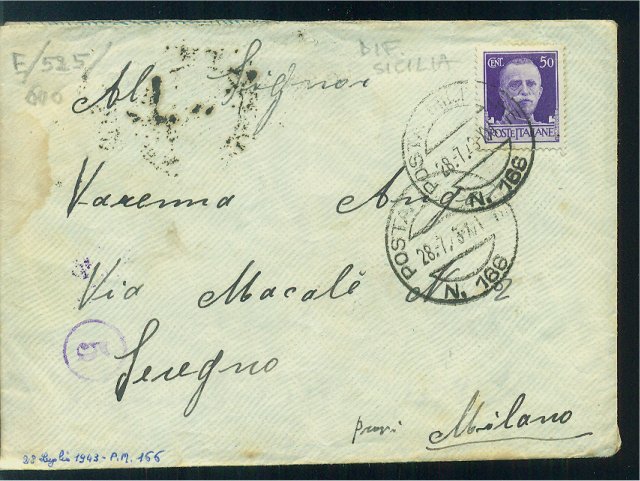 E/525/
600
DIF.
SICILIA
CENT. 50
POSTE ITALIANE
Al Signor
Varenna
POSTA N. 166
28.7.43
POSTA N. 166
28.7.43
Via Macalè N 2
Seregno
Milano
28 Luglio 1943 - P.M. 166